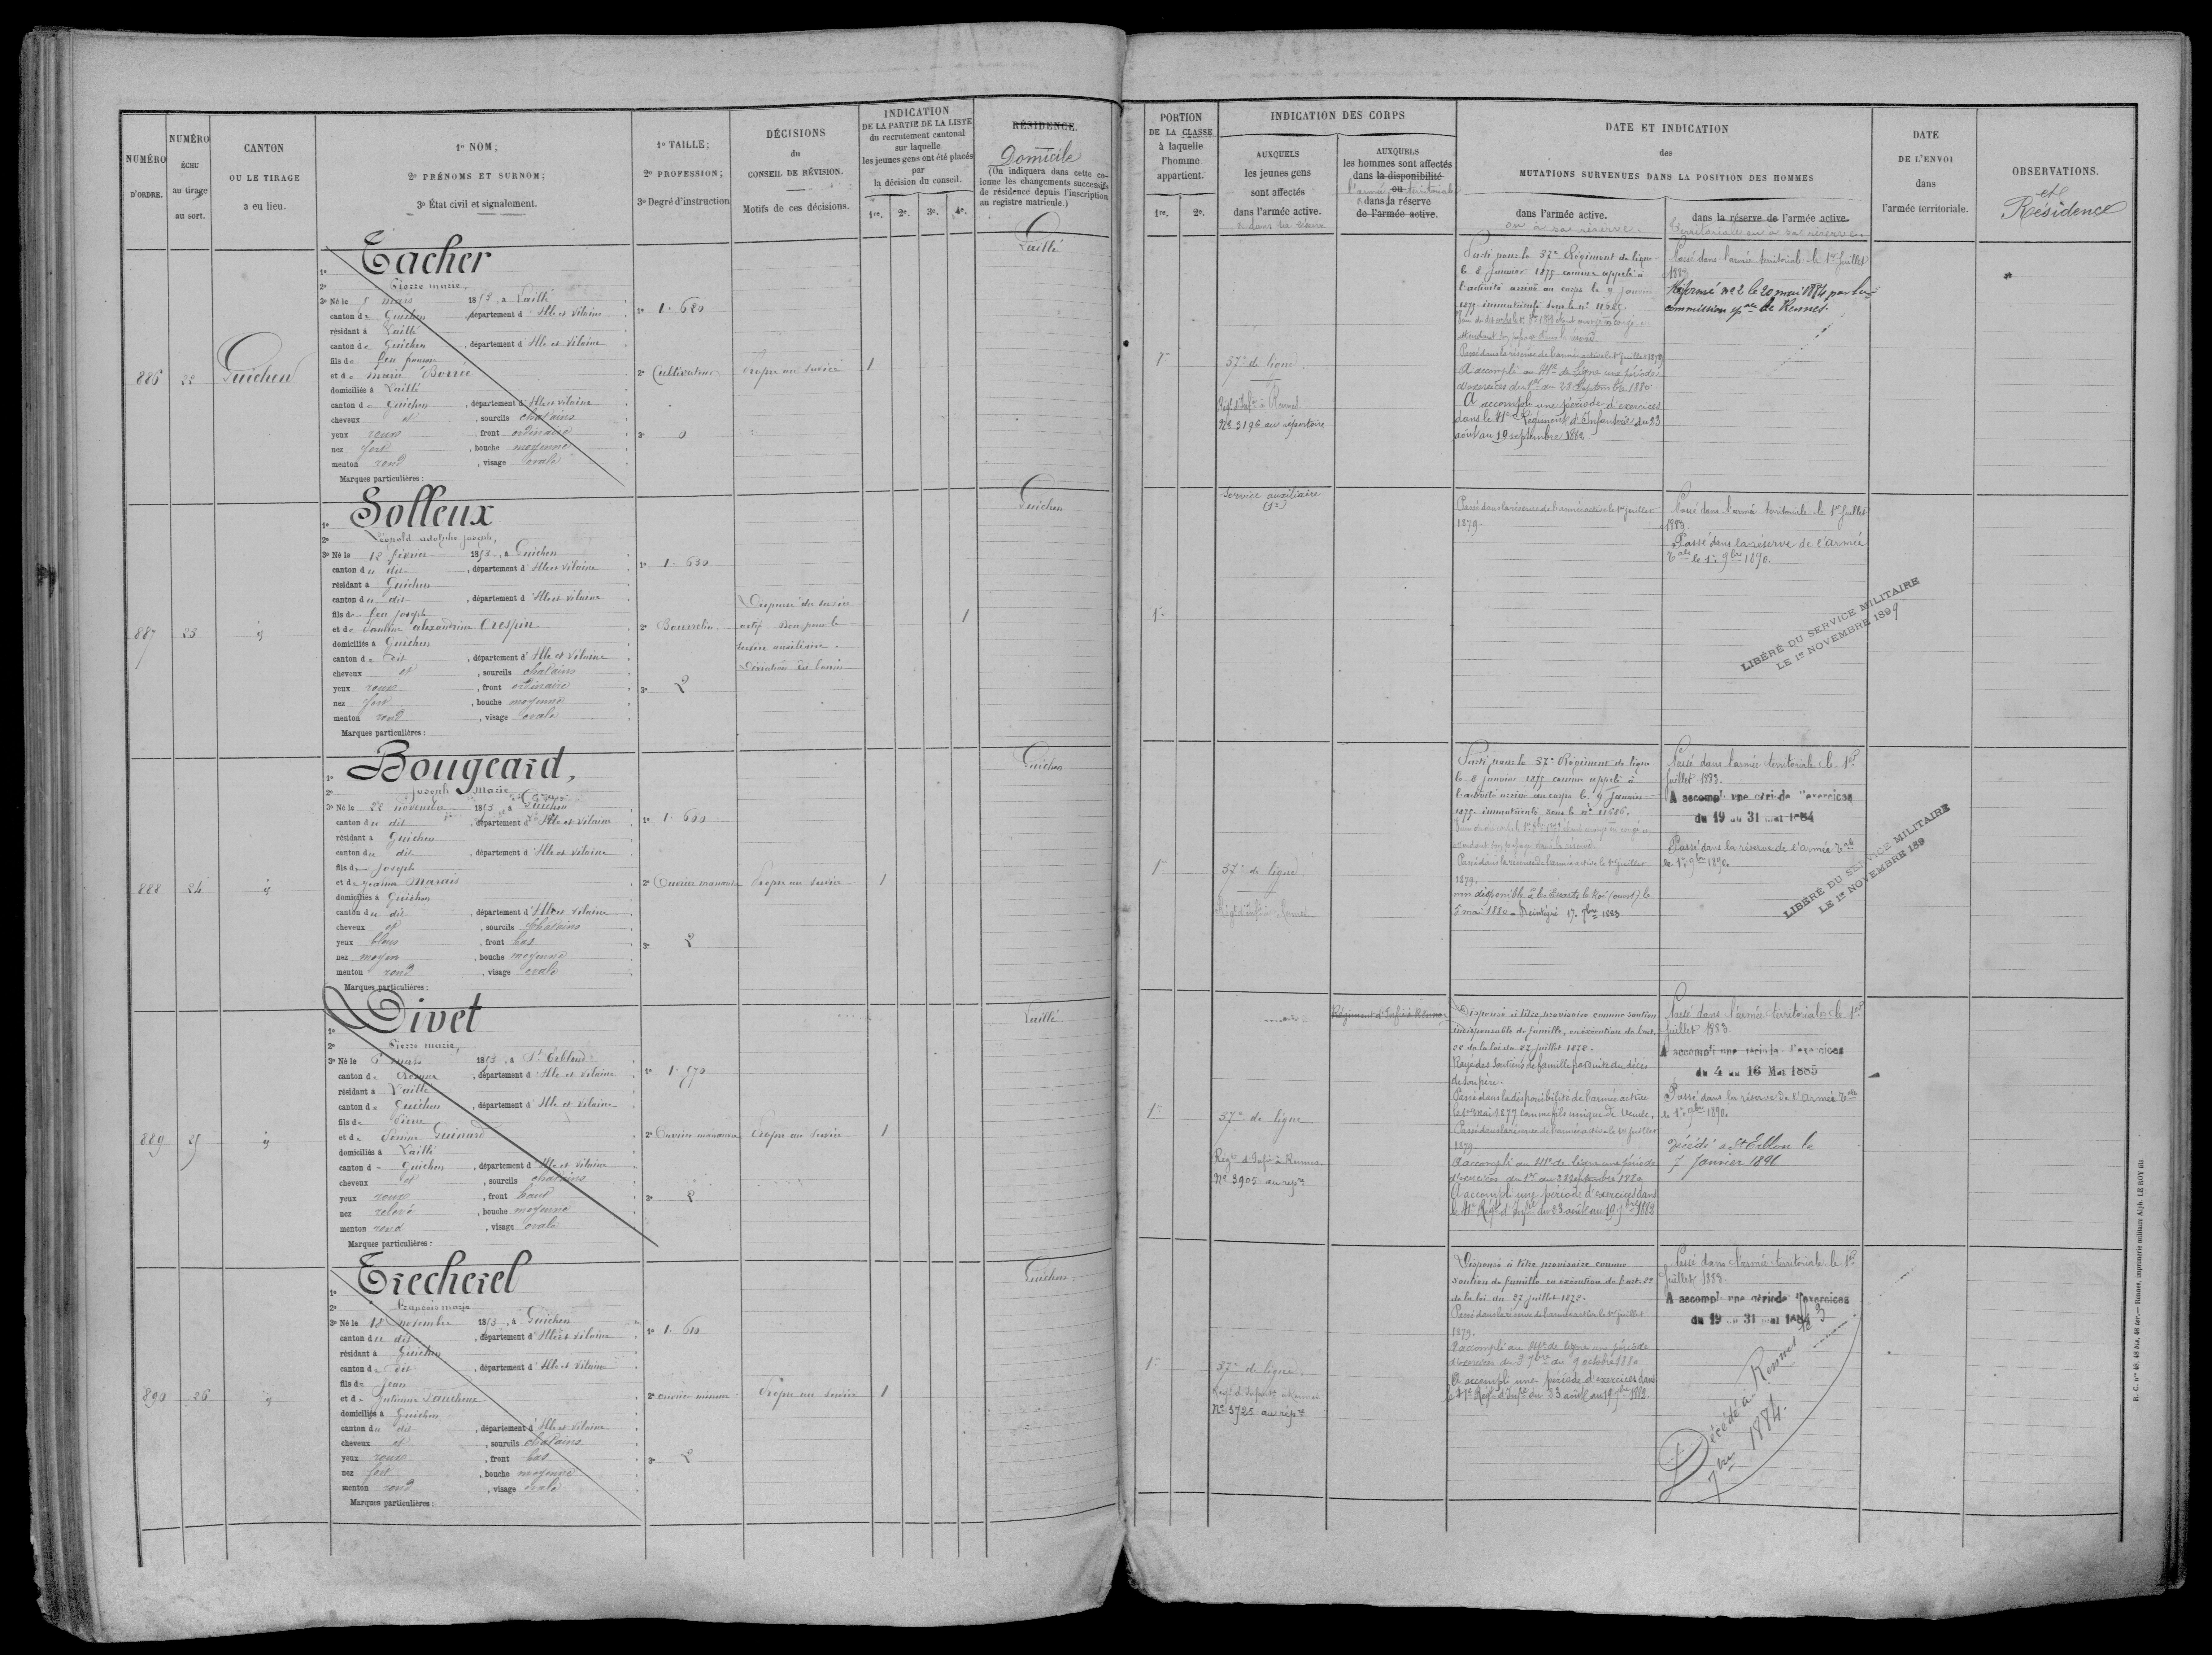 NUMÉRO
D'ORDRE.
NUMÉRO
ÉCHU
au tirage
au sort.
CANTON
OU LE TIRAGE
a eu lieu.
1º NOM;
2º PRÉNOMS ET SURNOM;
3º État civil et signalement.
1º TAILLE;
2º PROFESSION;
3º Degré d'instruction
DÉCISIONS
du
CONSEIL DE RÉVISION.
Motifs de ces décisions.
INDICATION
DE LA PARTIE DE LA LISTE
du recrutement cantonal
sur laquelle
les jeunes gens ont été placés
par
la décision du conseil.
1re. 2e. 3e. 4e.
RÉSIDENCE.
Domicile
(On indiquera dans cette co-
lonne les changements successifs
de résidence depuis l'inscription
au registre matricule.)
PORTION
DE LA CLASSE
à laquelle
l'homme
appartient.
1re. 2e.
INDICATION DES CORPS
AUXQUELS
les jeunes gens
sont affectés
dans l'armée active.
AUXQUELS
les hommes sont affectés
dans la disponibilité
ou
l'armée territoriale
dans la réserve
de l'armée active.
DATE ET INDICATION
des
MUTATIONS SURVENUES DANS LA POSITION DES HOMMES
dans l'armée active.
ou à sa réserve.
dans la réserve de l'armée active.
territoriale ou à sa réserve.
DATE
DE L'ENVOI
dans
l'armée territoriale.
OBSERVATIONS.
et
Résidence
886
22
Guichen
1º Tacher
2º Pierre marie,
3º Né le 5 mars 1853, à Laillé
canton de Guichen, département d'Ille et Vilaine
résidant à Laillé
canton de Guichen, département d'Ille et Vilaine
fils de feu
et de marie Borrée
domiciliés à Laillé
canton de Guichen, département d'Ille et Vilaine
cheveux et, sourcils chatains
yeux roux, front ordinaire
nez fort, bouche moyenne
menton rond, visage ovale
Marques particulières:
1º 1.680
2º Cultivateur
3º 0
Propre au service
1
Laillé
37e de ligne
Regt d'Infie à Rennes
Nº 3196 au répertoire
Parti pour le 37e Régiment de ligne
le 8 Janvier 1875 comme appelé à
l'activité arrivé au corps le 9 janvier
1875 immatriculé sous le nº 11685.
Passé dans la réserve de l'armée active le 1er juillet 1879
A accompli au 41e de ligne une période
d'exercices du 1er au 28 Septembre 1880
A accompli une période d'exercices
dans le 41e Régiment d'Infanterie du 23
août au 19 septembre 1882.
Passé dans l'armée territoriale le 1er Juillet
1883
Réformé nº 2 le 20 mai 1884 par la
commission spale de Rennes.
887
23
id
1º Solleux
2º Léopold adolphe joseph,
3º Né le 12 février 1853, à Guichen
canton du dit, département d'Ille et Vilaine
résidant à Guichen
canton du dit, département d'Ille et Vilaine
fils de feu joseph
et de alexandrine Crespin
domiciliés à Guichen
canton du dit, département d'Ille et Vilaine
cheveux et, sourcils chatains
yeux roux, front ordinaire
nez fort, bouche moyenne
menton rond, visage ovale
Marques particulières:
1º 1.630
2º Bourrelier
3º 2
Dispensé du service
actif. Bon pour le
service auxiliaire.
1
Guichen
1re
Service auxiliaire
Passé dans la réserve de l'armée active le 1er juillet
1879
Passé dans l'armée territoriale le 1er Juillet
1883
Passé dans la réserve de l'armée
tale le 1er 9bre 1890.
LIBÉRÉ DU SERVICE MILITAIRE
LE 1er NOVEMBRE 1899
888
24
id
1º Bougeard,
2º Joseph Marie
3º Né le 28 novembre 1853, à Guichen
canton du dit, département d'Ille et Vilaine
résidant à Guichen
canton du dit, département d'Ille et Vilaine
fils de Joseph
et de jeanne Marais
domiciliés à Guichen
canton du dit, département d'Ille et Vilaine
cheveux et, sourcils chatains
yeux bleus, front bas
nez moyen, bouche moyenne
menton rond, visage ovale
Marques particulières:
1º 1.660
2º Ouvrier
3º 2
Propre au service
1
Guichen
1re
37e de ligne
Regt d'Infie à Rennes
Parti pour le 37e Régiment de ligne
le 8 janvier 1875 comme appelé à
l'activité arrivé au corps le 9 Janvier
1875 immatriculé sous le nº 11686.
Passé dans la réserve de l'armée active le 1er juillet
1879.
non disponible
5 mai 1880 - Réintégré 17. 7bre 1883
Passé dans l'armée territoriale le 1er
Juillet 1883.
A accompli une période d'exercices
du 19 au 31 mai 1884
Passé dans la réserve de l'armée tale
le 1er 9bre 1890.
LIBÉRÉ DU SERVICE MILITAIRE
LE 1er NOVEMBRE 189
889
25
id
1º Divet
2º Pierre marie,
3º Né le 6 mars 1853, à St Erblon
canton de, département d'Ille et Vilaine
résidant à Laillé
canton de Guichen, département d'Ille et Vilaine
fils de Pierre
et de Perrine Guinard
domiciliés à Laillé
canton de Guichen, département d'Ille et Vilaine
cheveux et, sourcils chatains
yeux roux, front haut
nez relevé, bouche moyenne
menton rond, visage ovale
Marques particulières:
1º 1.570
2º Ouvrier
3º 2
Propre au service
1
Laillé
1re
37e de ligne
Regt d'Infie à Rennes.
Nº 3905 au repre
Régiment d'Infie à Rennes
Dispensé à titre provisoire comme soutien
indispensable de famille, en exécution de l'art.
22 de la loi du 27 juillet 1872.
Rayé des soutiens de famille par suite du décès
de son père.
Passé dans la disponibilité de l'armée active
le 1er mai 1877 comme fils unique de veuve.
Passé dans la réserve de l'armée active le 1er juillet
1879.
A accompli au 41e de ligne une période
d'exercices du 1er au 28 septembre 1880
A accompli une période d'exercices dans
le 41e Regt d'Infie du 23 août au 19 7bre 1882
Passé dans l'armée territoriale le 1er
Juillet 1883
A accompli une période d'exercices
du 4 au 16 Mai 1885
Passé dans la réserve de l'armée tale
le 1er 9bre 1890.
Décédé à St Erblon le
7 Janvier 1896
890
26
id
1º Trecherel
2º François marie
3º Né le 18 novembre 1853, à Guichen
canton du dit, département d'Ille et Vilaine
résidant à Guichen
canton du dit, département d'Ille et Vilaine
fils de Jean
et de Julienne
domiciliés à Guichen
canton du dit, département d'Ille et Vilaine
cheveux et, sourcils chatains
yeux roux, front bas
nez fort, bouche moyenne
menton rond, visage ovale
Marques particulières:
1º 1.610
2º ouvrier mineur
3º 2
Propre au service
1
Guichen.
1re
37e de ligne.
Regt d'Infie à Rennes
Nº 3725 au repre
Dispensé à titre provisoire comme
soutien de famille en exécution de l'art. 22
de la loi du 27 juillet 1872.
Passé dans la réserve de l'armée active le 1er juillet
1879.
A accompli au 41e de ligne une période
d'exercices du 9 octobre 1880
A accompli une période d'exercices dans
le 41e Regt d'Infie du 23 août au 19 7bre 1882.
Passé dans l'armée territoriale le 1er
Juillet 1883.
A accompli une période d'exercices
du 19 au 31 mai 1884
Décédé à Rennes le 3
7bre 1884.
R. C. nos 48, 48 bis, 48 ter. — Rennes, imprimerie militaire Alph. LE ROY fils